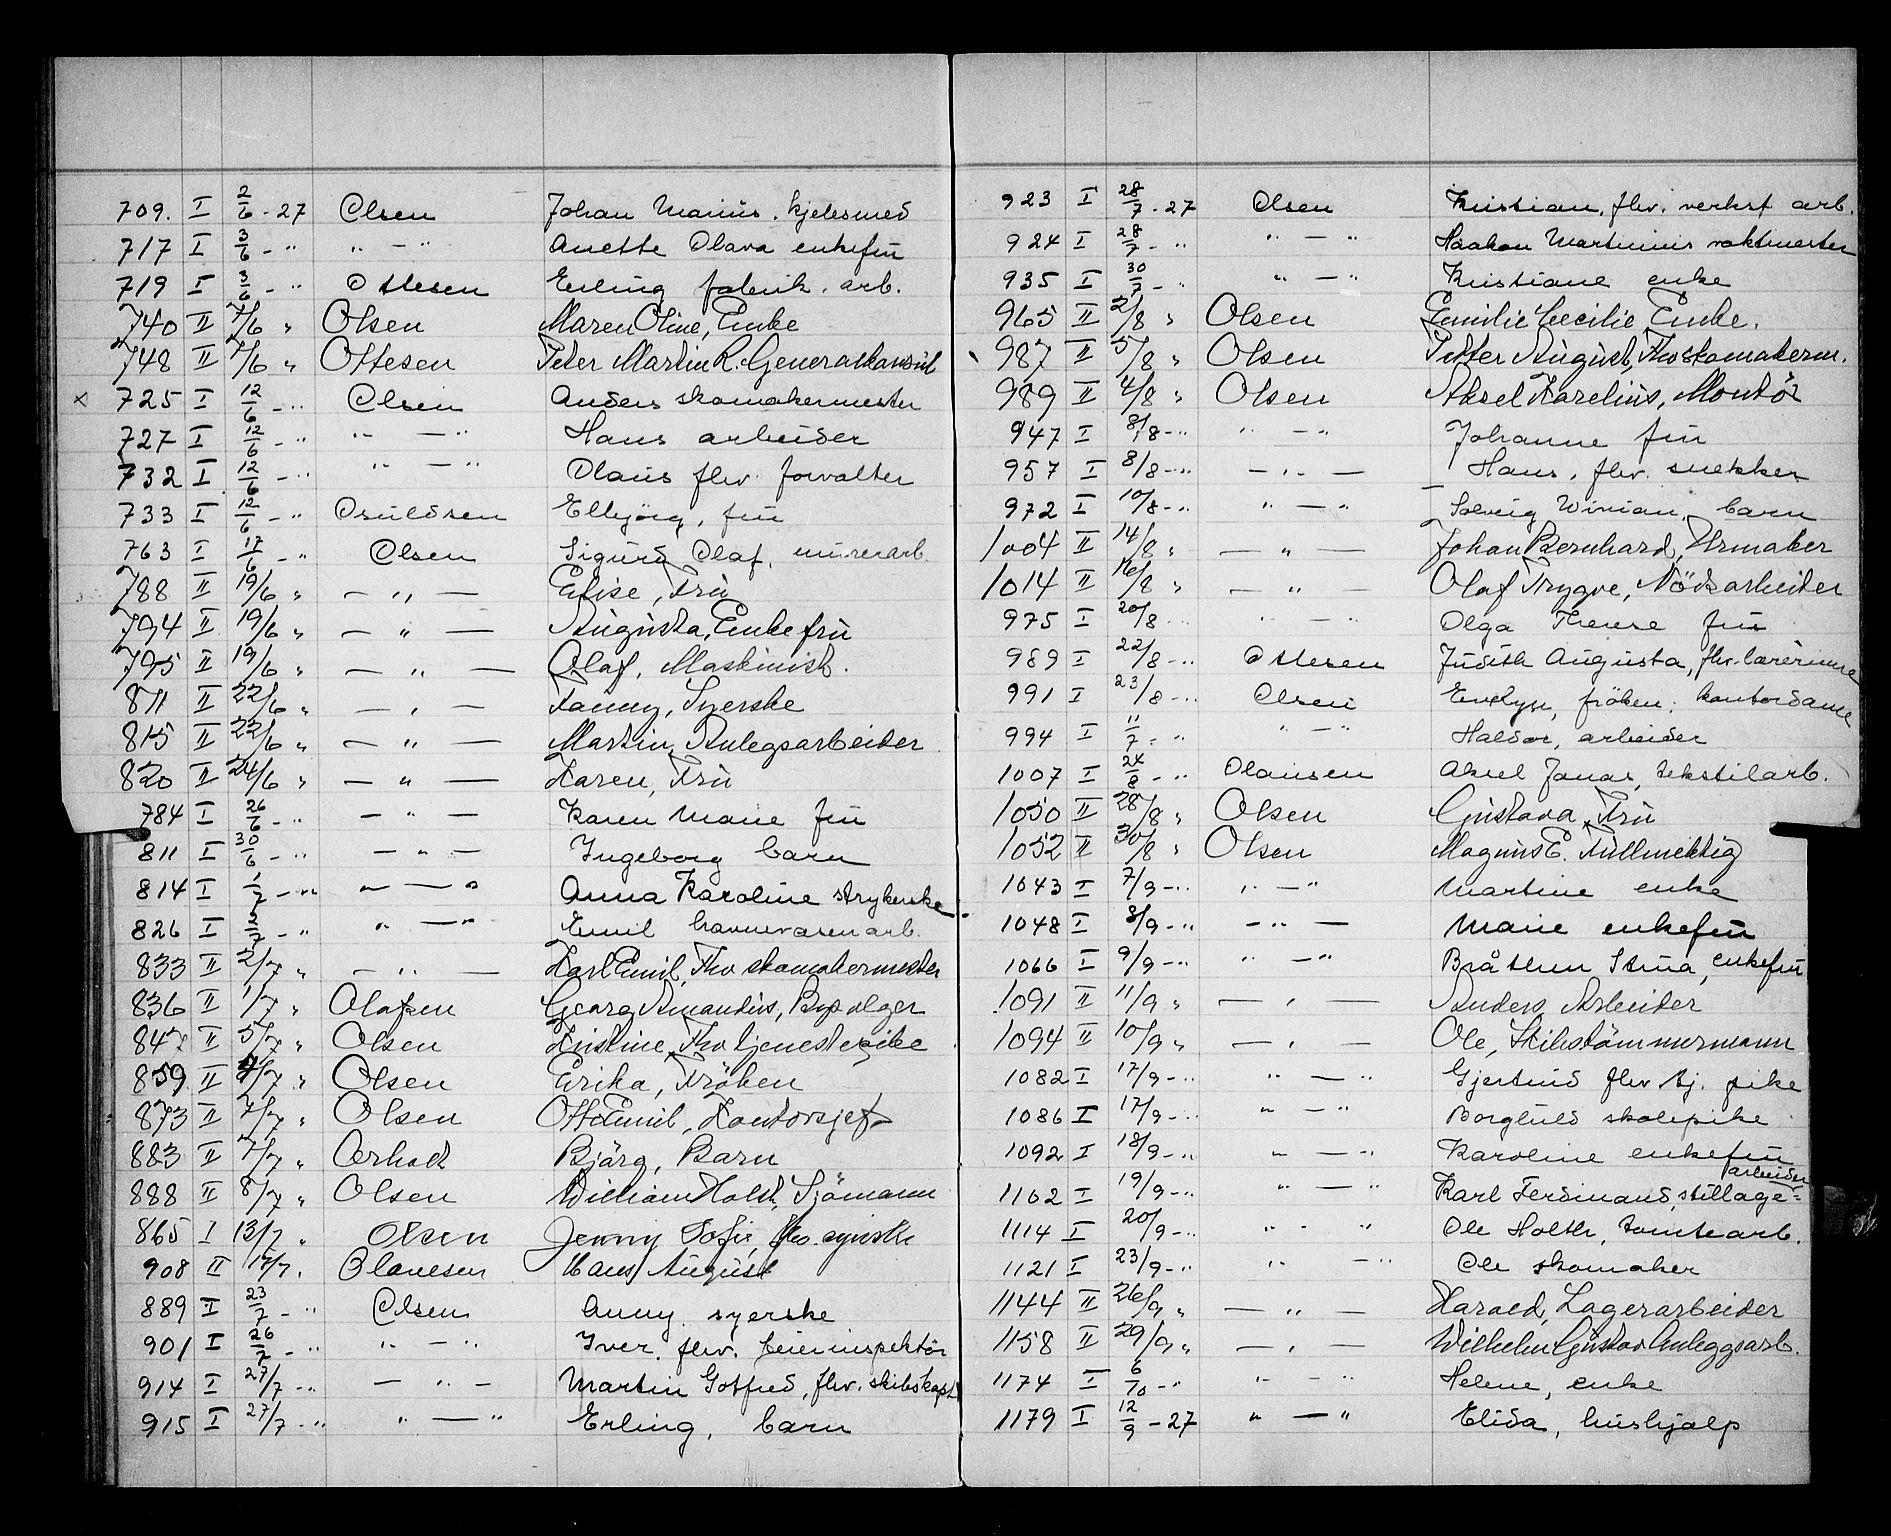 709. I 2/6 - 27 Olsen Johan Marius. kjelesmed
717 I 3/6 - " " - " Anette Olava enkefru
719 I 3/6 - " Ottesen Erling fabrik. arb.
740 II 7/6 " Olsen Maren Oline, Enke
748 II 7/6 " Ottesen Peter Martin R. Generalkonsul
x 725 I 12/6 - " Olsen Anders skomakermester
727 I 12/6 - " " - " Hans arbeider
732 I 12/6 - " " - " Olaus fhv. forvalter
733 I 12/6 - " Osuldsen Elbjörg, fru
763 I 17/6 - " Olsen Sigurd Olaf, murerarb.
788 II 19/6 " — " — Elise, Fru
794 II 19/6 " — " — Augusta, Enkefru
795 II 19/6 " — " — Olaf, Maskinist.
811 II 22/6 " — " — Fanny, Syerske
815 II 22/6 " — " — Martin, Anlegsarbeider
820 II 24/6 " — " — Karen, Fru
784 I 26/6 - " — " — Karen Marie fru
811 I 30/6 - " — " — Ingeborg barn
814 I 1/7 - " " — " Anna Karoline strykerske
826 I 2/7 - " " — " Emil havnevæsenarb.
833 II 2/7 " — " — Karl Emil, Fhv skomakermester
836 II 1/7 " Olafsen Georg Amandus,
847 II 5/7 " Olsen Kristine, Fhv tjenestepike
859 II 4/7 " Olsen Erika, Fröken
873 II 7/7 " Olsen Otto Emil, Kontorsjef
883 II 7/7 " Björg, Barn
888 II 8/7 " Olsen William Holst, Sjömann
865 I 13/7 " Olsen Jenny Sofie, fhv. syerske
908 II 17/7. Olavesen Hans August
889 I 23/7 - " Olsen Anny syerske
901 I 26/7 - " " - " Iver. fhv. feierinspektör
914 I 27/7 - " — " — Martin Gotfred, fhv. skibskapt
915 I 27/7 - " " — " Erling, barn
923 I 28/7 - 27 Olsen Kristian, fhv. verkst arb.
924 I 28/7 - " " — " Haakon Martinius vaktmester
935 I 30/7 - " " — " Kristiane enke
965 II 2/8 " Olsen Emilie Cecilie, Enke.
987 II 5/8 " Olsen Petter August, Fhv skomakerm.
989 II 4/8 " Olsen Aksel Karelius, Montör
947 I 8/8 - " " — " Johanne fru
957 I 8/8 - " — " — Hans, fhv. snekker
972 I 10/8 - " " — " Solveig Wivian, barn
1004 II 14/8 " — " — Johan Bernhard, Urmaker
1014 II 16/8 " — " — Olaf Trygve, Nödsarbeider
975 I 20/8 " — " Olga Therese fru
989 I 22/8 - " Ottesen Judith Augusta, fhv. lærerinne
991 I 23/8 - " Olsen Evelyn, fröken, kontordame
994 I 11/7 - " " — " Haldor, arbeider
1007 I 24/8 - " Olausen Aksel Jonas, tekstilarb.
1050 II 28/8 " Olsen Gustava, Fru
1052 II 30/8 " Olsen Magnus E. Fullmektig
1043 I 7/9 - " " — " Martine enke
1048 I 8/9 - " — " — Marie enkefru
1066 I 9/9 - " " — " Bråthen Stina, enkefru
1091 II 11/9 " — " — Anders, Arbeider
1094 II 10/9 " — " — Ole, Skibstömmermann
1082 I 17/9 - " " — " Gjertrud fhv tj. pike
1086 I 17/9 - " " — " Borghild skolepike
1092 I 18/9 - " " — " Karoline enkefru
1102 I 19/9 - " " — " Karl Ferdinand, stillage- arbeider
1114 I 20/9 - " " - " Ole Holth, tomtearb.
1121 I 23/9 - " " - " Ole skomaker
1144 II 26/9 " — " — Harald, Lagerarbeider
1158 II 29/9 " — " — Wilhelm Gustav Anleggsarb.
1174 I 6/10 - " " - " Helene, enke
1179 I 12/9 - 27 " — " Elida, hushjælp